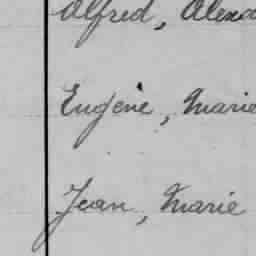 Alfred, Alexa
Eugène, Marie
Jean, Marie